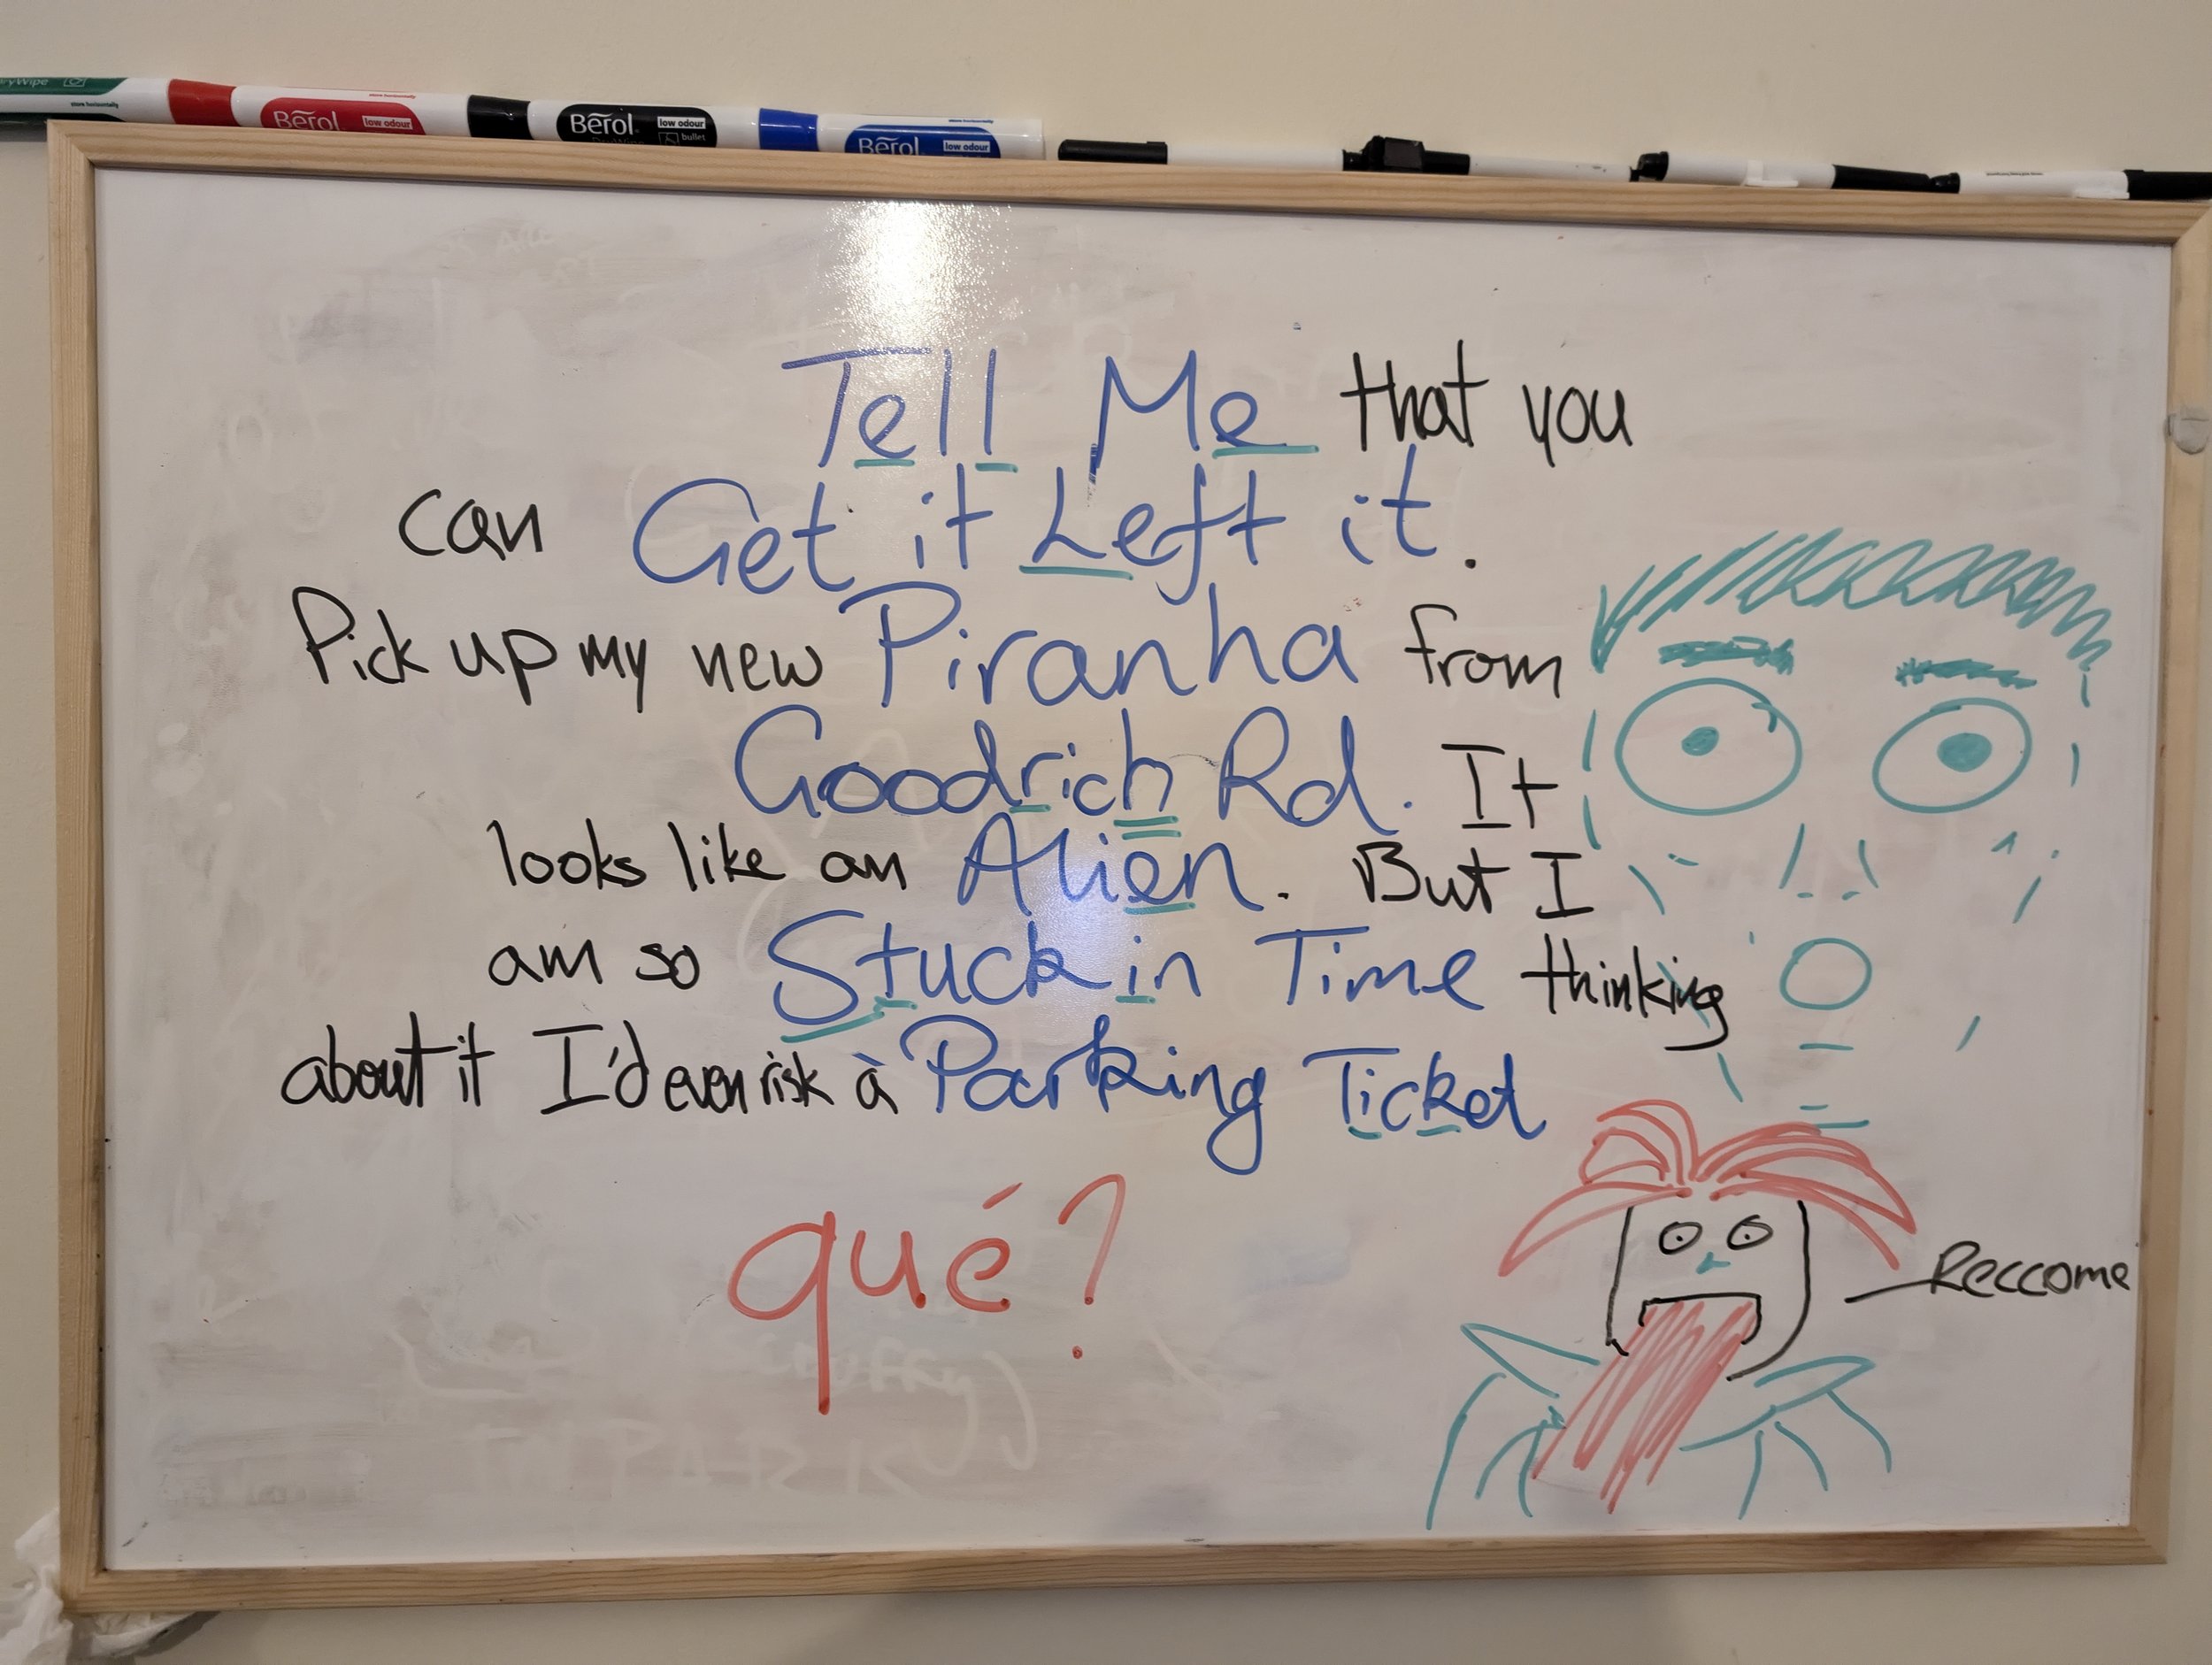 DryWipe
store horizontally
Berol
low odour
Berol
low odour
bullet
Berol
low odour
Tell Me that you
can Get it Left it.
Pick up my new Piranha from
Goodrich Rd. It
looks like an Alien. But I
am so Stuck in Time thinking
about it I'd even risk a Parking Ticket
qué?
Reccome